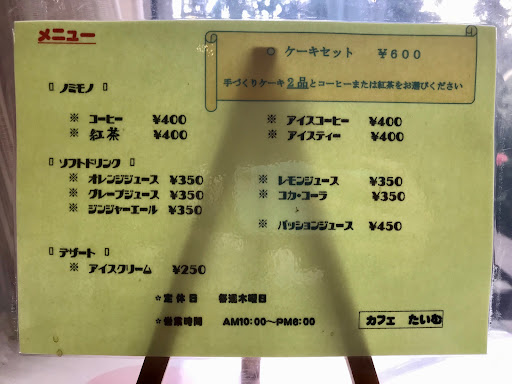 メニュー
○ ケーキセット ￥600
手づくりケーキ2品とコーヒーまたは紅茶をお選びください
〖 ノミモノ 〗
※ コーヒー ￥400 ※ アイスコーヒー ￥400
※ 紅茶 ￥400 ※ アイスティー ￥400
〖 ソフトドリンク 〗
※ オレンジジュース ￥350 ※ レモンジュース ￥350
※ グレープジュース ￥350 ※ コカ・コーラ ￥350
※ ジンジャーエール ￥350
※ パッションジュース ￥450
〖 デザート 〗
※ アイスクリーム ￥250
☆定休日 毎週木曜日
☆営業時間 AM10:00～PM6:00
カフェ たいむ